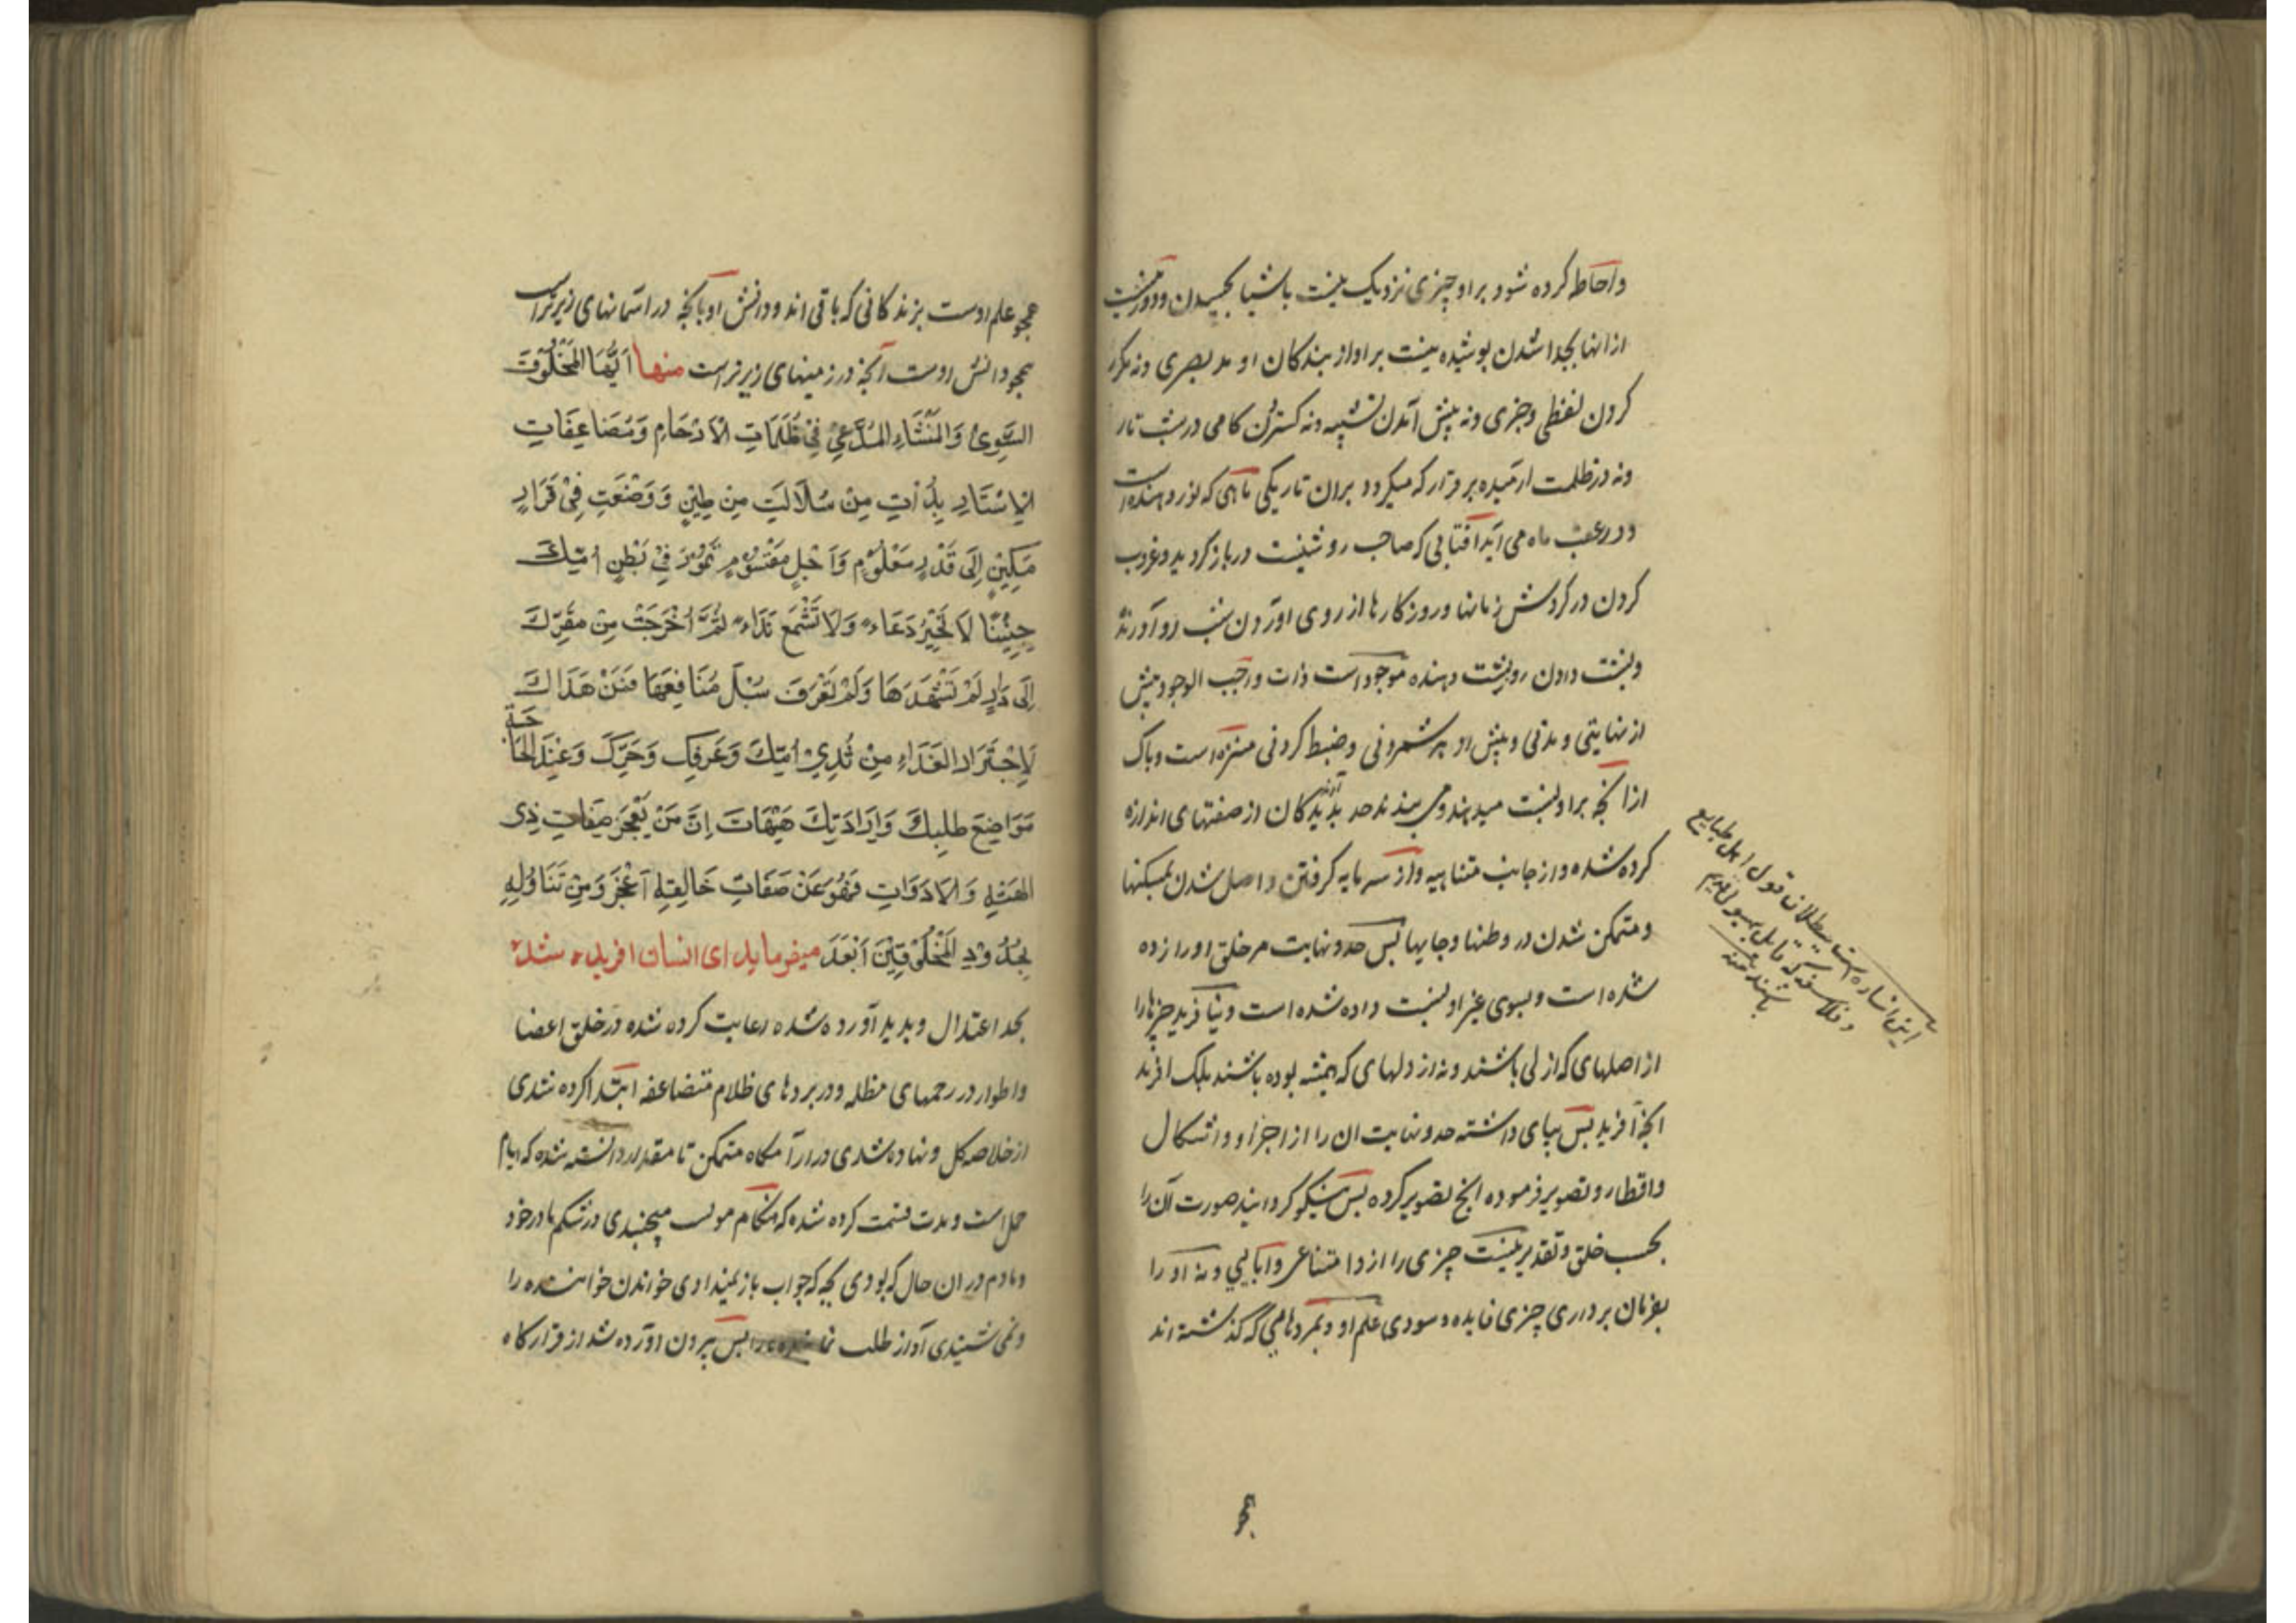 واحاطه کرده شود براو چیزی نزدیک نیست باشیا بچسپیدن ودور نیست
ازانها بجدا شدن پوشیده نیست براو از بندکان او مد بصری ونه مکرر
کردن لفظی وچزی ونه پیش آمدن پشته ونه کستردن کامی درشب تار
ونه درظلمت ارمیده برقرار که میکردد بران تاریکی ماهی که نور دهنده است
ودرعقب ماه می آید آفتابی که صاحب روشنیست درباز کردیدن وغروب
کردن در کردش زمانها وروزکارها از روی اوردن شب رو آورنده
وپشت دادن روز پشت دهنده موجود است ذات واجب الوجود پیش
از نهایتی ومدتی وپیش از هر شمردنی وضبط کردنی منزه است وپاک
ازانچه براو نسبت میدهند ومی بندند حد پدید آرندکان از صفتهای اندازه
کرده شده واز جانب متناهیه واز سرمایه کرفتن واصل شدن بمسکنها
ومتمکن شدن در وطنها وجایها پس حد ونهایت مر خلق او را زده
شده است وبسوی غیر او نسبت داده شده است ونیافرید چیزها را
از اصلهای که ازلی باشند ونه از دلهای که همیشه بوده باشند بلکه افرید
انچه آفرید پس بپای داشته حد ونهایت ان را از اجزا و واشکال
واقطار وتصویر فرموده انچه تصویر کرده پس نیکو کردانید صورت آن را
بحسب خلق وتقدیر نیست چیزی را ازو امتناعی وابایی ونه او را
بفرمان برداری چیزی فایده وسودی علم او بمردهایی که گذشته اند
این اشاره است ببطلان قول اهل طبایع
وفلاسفه که قایل بهیولی قدیم
باشند منه
همچو
همچو علم اوست بزندکانی که باقی اند ودانش او بانچه در اسمانهای زبرتر است
همچو دانش اوست آنچه در زمینهای زیرتر است منها اَیُّهَا المَخْلُوقُ
السَّوِیُّ وَالمُنْشَاءِ المُدَّعیِ فِیْ ظُلُمَاتِ الْاَرْحَامِ وَمُضَاعِفَاتِ
الْاِسْتَارِ بِدُأتِ مِنْ سُلَالَتِ مِنْ طِیْنٍ وَوَضْعَتِ فِیْ قَرَارٍ
مَکِیْنٍ اِلَی قَدْرٍ مَعْلُوْمٍ وَاَجَلٍ مَقْسُوْمٍ تَمُوْرَ فِیْ بَطْنِ اُمِّکَ
جَنِیْنًا لَا تُحِیْرُ دَعَاءً وَلَا تَسْمَعُ نِدَاءً ثُمَّ اُخْرِجَتْ مِنْ مَقَرِّکَ
اِلَی دَارٍ لَمْ تَشْهَدَهَا وَلَمْ تَعْرَفَ سُبُلَ مَنَافِعِهَا فَمَنْ هَدَاکَ
لَاِجْتَرَارِ الغَذَاءِ مِنْ ثَدِیْ اُمِّکَ وَعَرَفَکَ وَحَرَّکَ وَعَنِدَ الحَاجَةِ
مَوَاضِعَ طلِبِکَ وَاِرَادَتِکَ هَیْهَاتَ اِنَّ مَنْ یَعْجَزَ صِفَاتِ ذِی
الهَیْئَةِ وَالاَدَوَاتِ فَهُوَ عَنْ صَفَاتِ خَالِقِهِ اَعْجَزَ وَمِنْ تَنَاوُلِهِ
بِحُدُوْدِ المَخْلُوْقِیْنَ اَبْعَدَ میفرماید ای انسان افریده شده
بحد اعتدال وپدید آورده شده رعایت کرده شده در خلق اعضا
واطوار در رحمهای مظلمه ودر پردهای ظلام متضاعفه ابتدا کرده شدی
از خلاصه کل ونهاده شدی در ارامکاه متمکن تا مقدار دانسته شده که ایام
حمل است ومدت قسمت کرده شده که هنکام مولد میجنبیدی در شکم مادر خود
ومادم در ان حال که بودی بچه که جواب باز نمیدادی خواندن خواننده را
ونمی شنیدی آواز طلب نماینده را پس بیرون اورده شد از قرارکاه